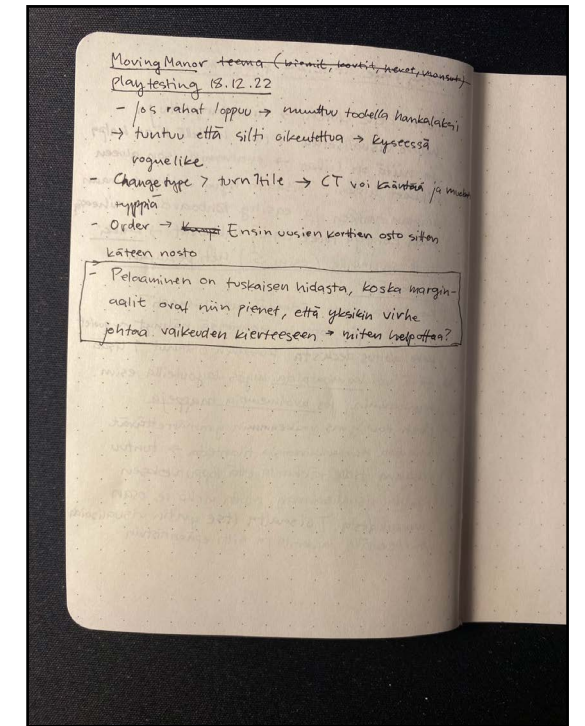 Moving Manor teema (biomit, kortit, hexat,
playtesting 18.12.22
- Jos rahat loppuu → muuttuu todella hankalaksi
→ tuntuu että silti oikeutettua → kyseessä
roguelike
- Change type > turn 1 tile → CT voi kääntää ja
tyyppiä
- Order → Ensin uusien korttien osto sitten
käteen nosto
- Pelaaminen on tuskaisen hidasta, koska margin-
aalit ovat niin pienet, että yksikin virhe
johtaa vaikeuden kierteeseen → miten helpottaa?